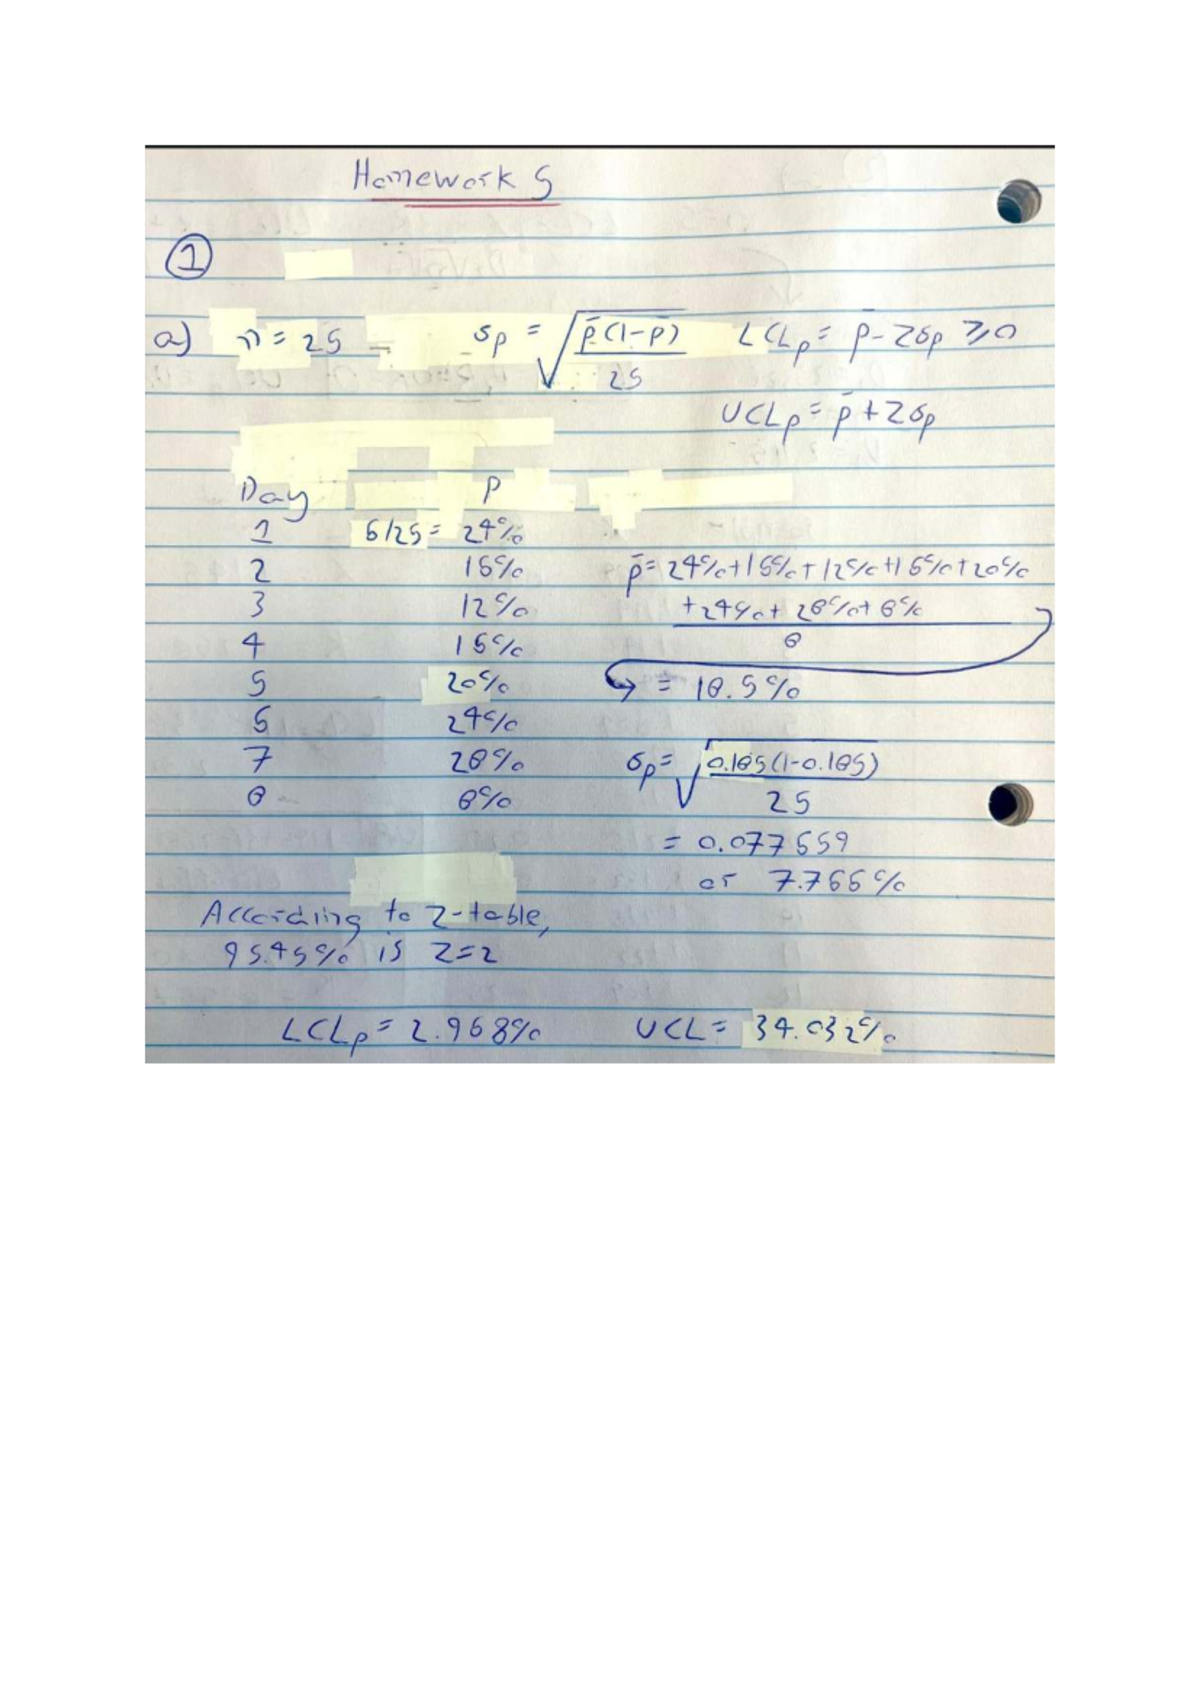 Homework 5
1
a) n = 25 σp = √(p̄(1-p̄)/25) LCLp = p̄ - Zσp ≥ 0
UCLp = p̄ + Zσp
Day P
1 6/25 = 24%
2 16% p̄ = 24% + 16% + 12% + 16% + 20%
3 12% + 24% + 28% + 8%
4 16% 8
5 20% → = 18.5%
6 24%
7 28% σp = √(0.185(1-0.185)/25)
8 8%
= 0.077659
or 7.766%
According to Z-table,
95.45% is Z=2
LCLp = 2.968% UCL = 34.032%